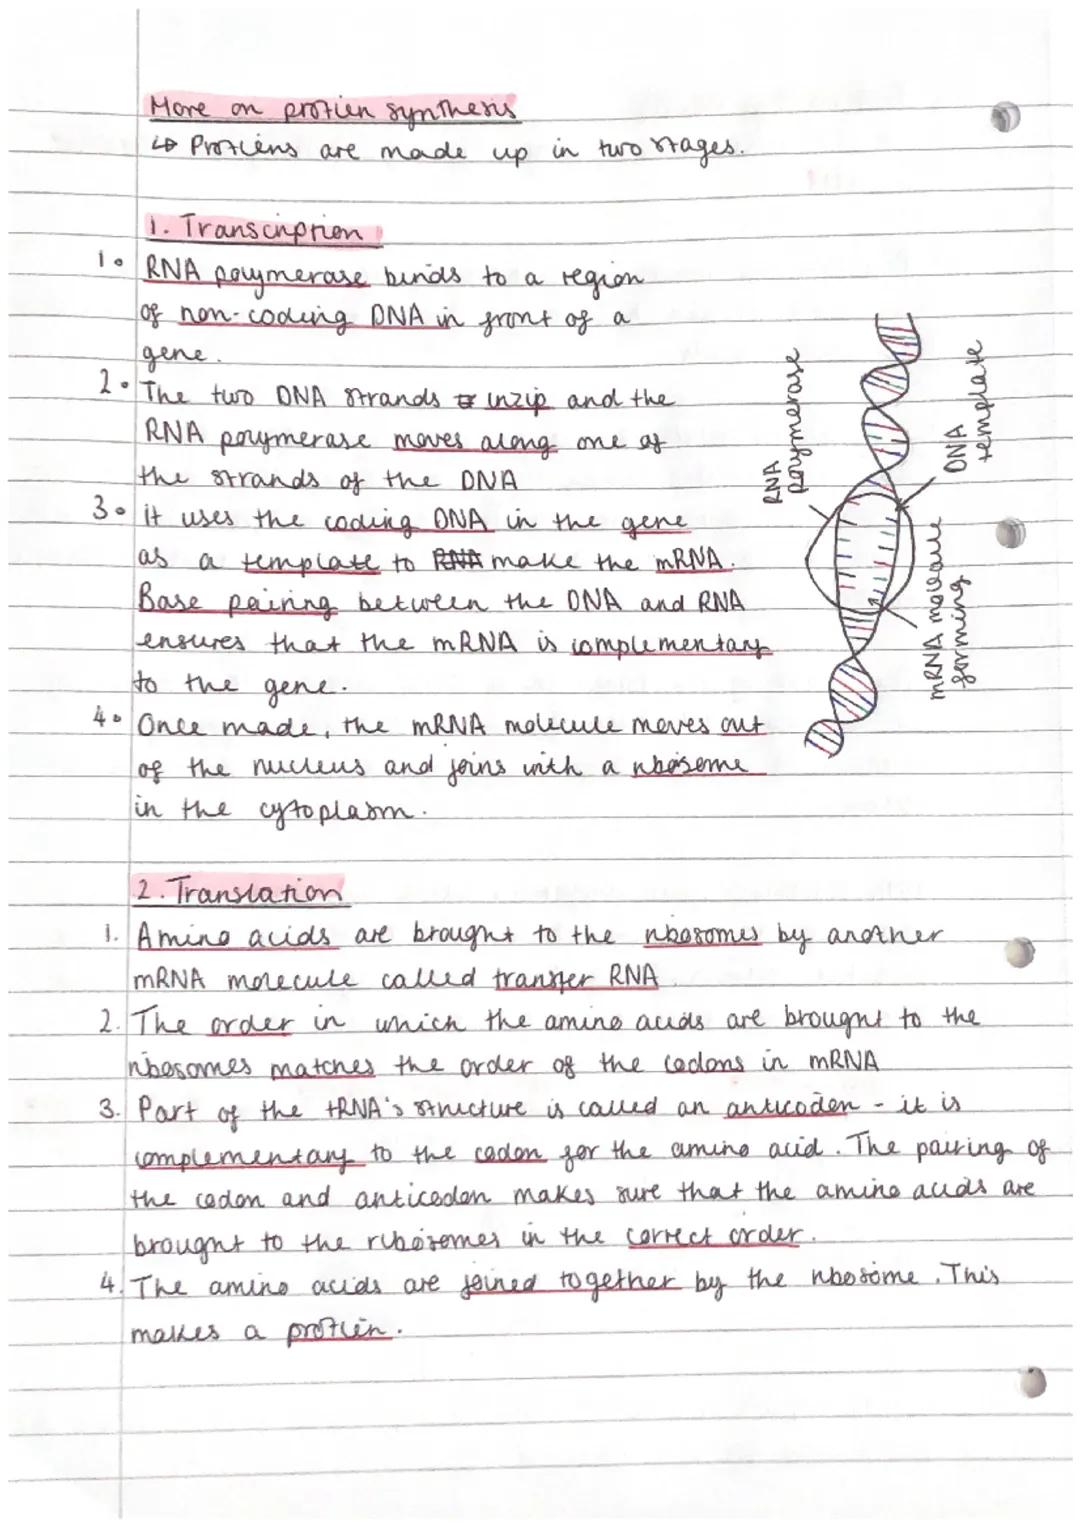 More on protien synthesis
↳ Protiens are made up in two stages.
1. Transcription
1. RNA polymerase binds to a region
of non-coding DNA in front of a
gene.
2. The two DNA strands unzip and the
RNA polymerase moves along one of
the strands of the DNA
3. it uses the coding DNA in the gene
as a template to RNA make the mRNA.
Base pairing between the DNA and RNA
ensures that the mRNA is complementary
to the gene.
4. Once made, the mRNA molecule moves out
of the nucleus and joins with a ribosome
in the cytoplasm.
RNA
polymerase
DNA
template
mRNA molecule
forming
2. Translation
1. Amino acids are brought to the ribosomes by another
mRNA molecule called transfer RNA
2. The order in which the amino acids are brought to the
ribosomes matches the order of the codons in mRNA
3. Part of the tRNA's structure is called an anticodon - it is
complementary to the codon for the amino acid. The pairing of
the codon and anticodon makes sure that the amino acids are
brought to the ribosomes in the correct order.
4. The amino acids are joined together by the ribosome. This
makes a protien.